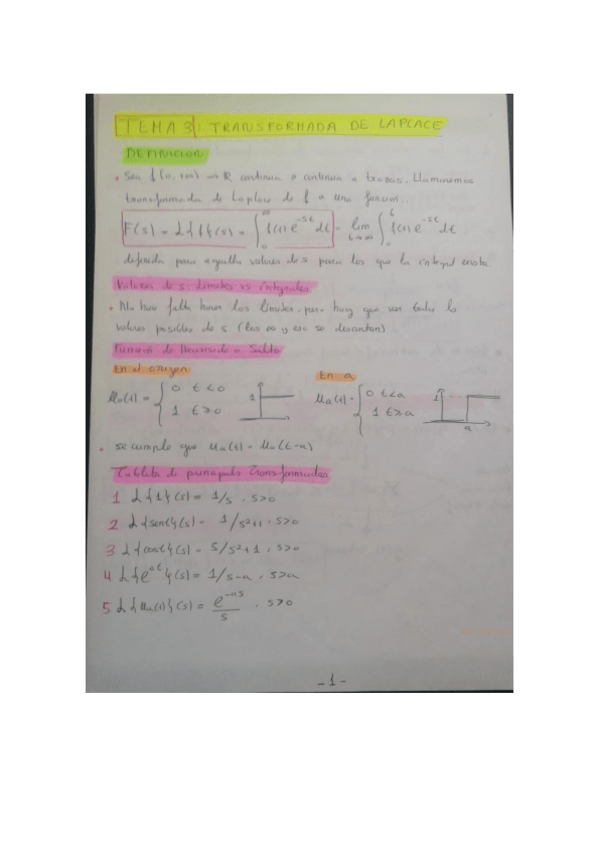 TEMA 3: TRANSFORMADA DE LAPLACE
DEFINICION
• Sea f [0, +∞) → R continua o continua a trozos. Llamaremos
transformada de Laplace de f a una función.
F(s) = L{f}(s) = ∫₀^∞ f(t) e^{-st} dt = lim_{b→∞} ∫₀^b f(t) e^{-st} dt
definida para aquellos valores de s para los que la integral exista
Valores de s: límites vs integrales
• No hace falta hacer los límites, pero hay que ver todos los
valores posibles de s (los ∞ y eso se descartan)
Función de Heaviside o Salto
En el origen
μ₀(t) = { 0 t<0
1 t>0
1
En a
μₐ(t) = { 0 t<a
1 t>a
1
a
• se cumple que μₐ(t) = μ₀(t-a)
Tablita de principales transformadas
1 L{1}(s) = 1/s , s>0
2 L{sent}(s) = 1/s²+1 , s>0
3 L{cost}(s) = s/s²+1 , s>0
4 L{e^{at}}(s) = 1/s-a , s>a
5 L{μₐ(t)}(s) = e^{-as}/s , s>0
-1-